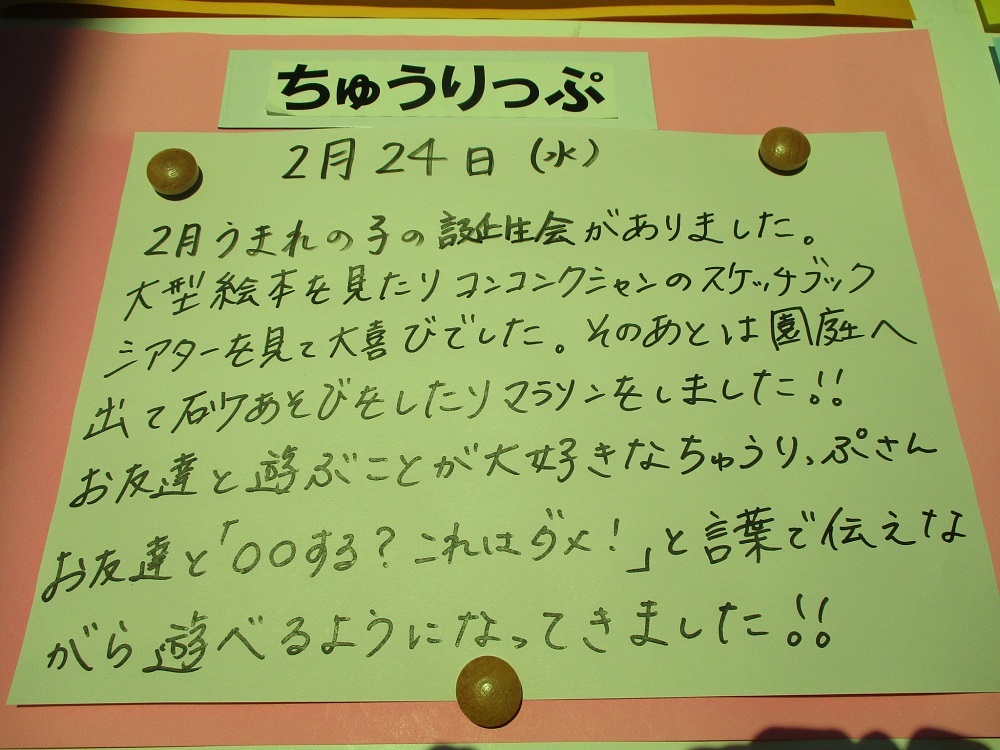 ちゅうりっぷ
2月24日(水)
2月うまれの子の誕生会がありました。
大型絵本を見たりコンコンクシャンのスケッチブック
シアターを見て大喜びでした。そのあとは園庭へ
出て砂あそびをしたりマラソンをしました!!
お友達と遊ぶことが大好きなちゅうりっぷさん
お友達と「〇〇する?これはダメ!」と言葉で伝えな
がら遊べるようになってきました!!